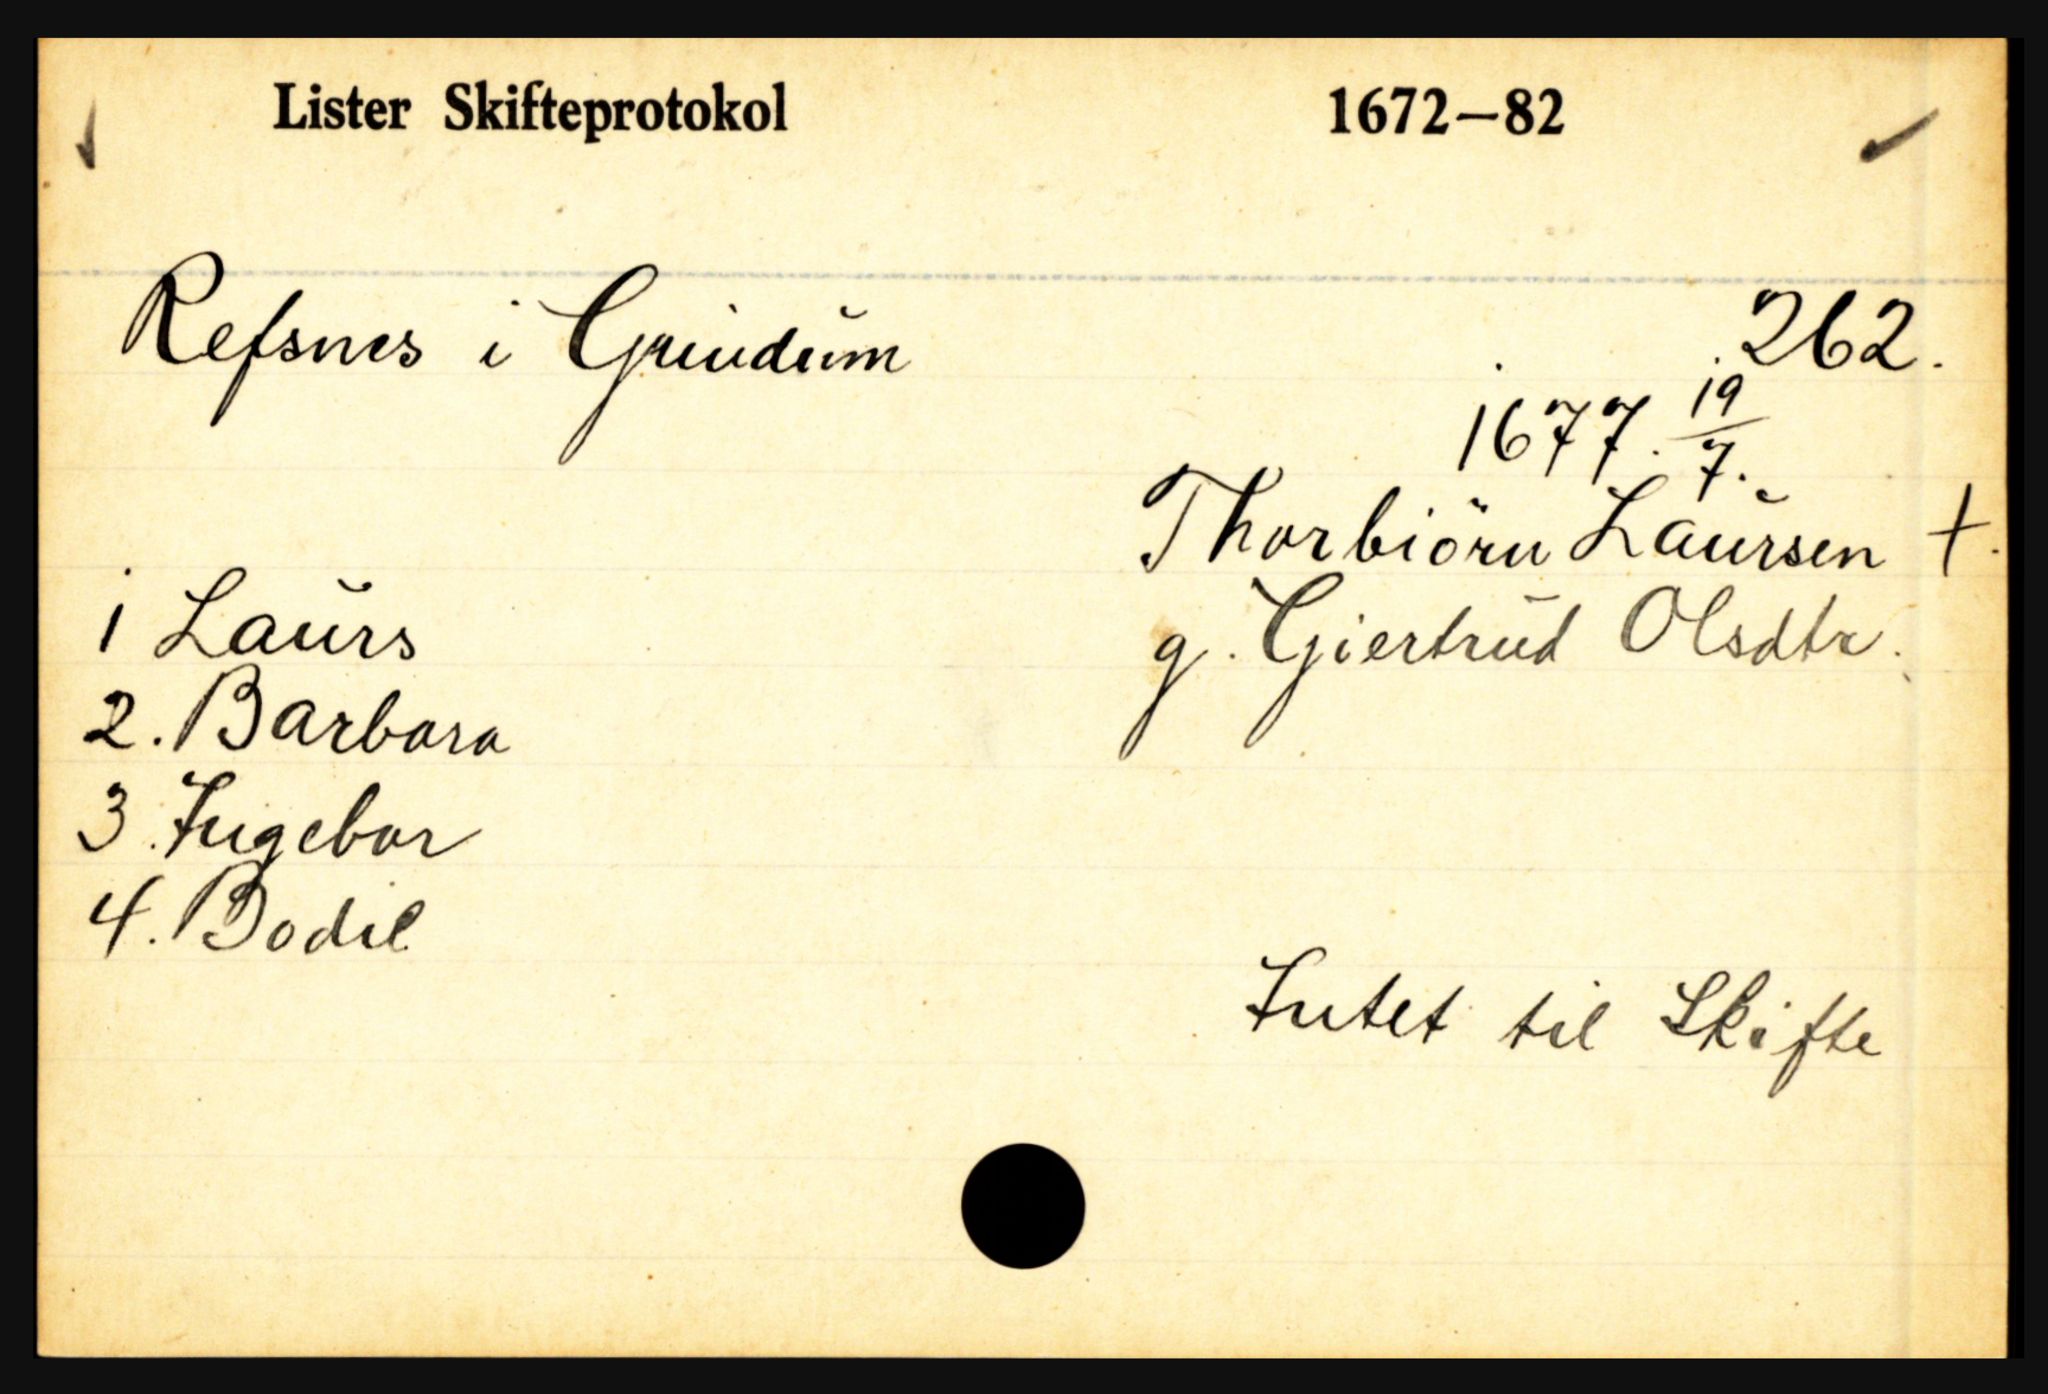 Lister Skifteprotokol 1672—82
Refsnes i Grindum 262.
1677. 19/7.
Thorbiörn Laursen †.
g. Giertrud Olsdtr.
1 Laurs
2. Barbara
3. Ingebor
4. Bodil
Intet til Skifte